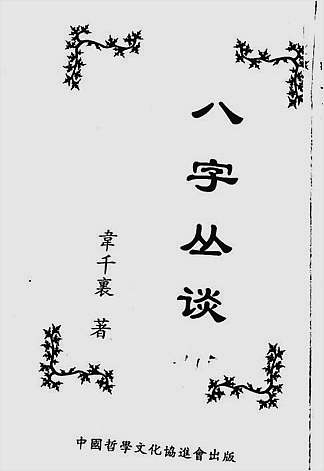 八字丛谈
韋千裏 著
中國哲學文化協進會出版